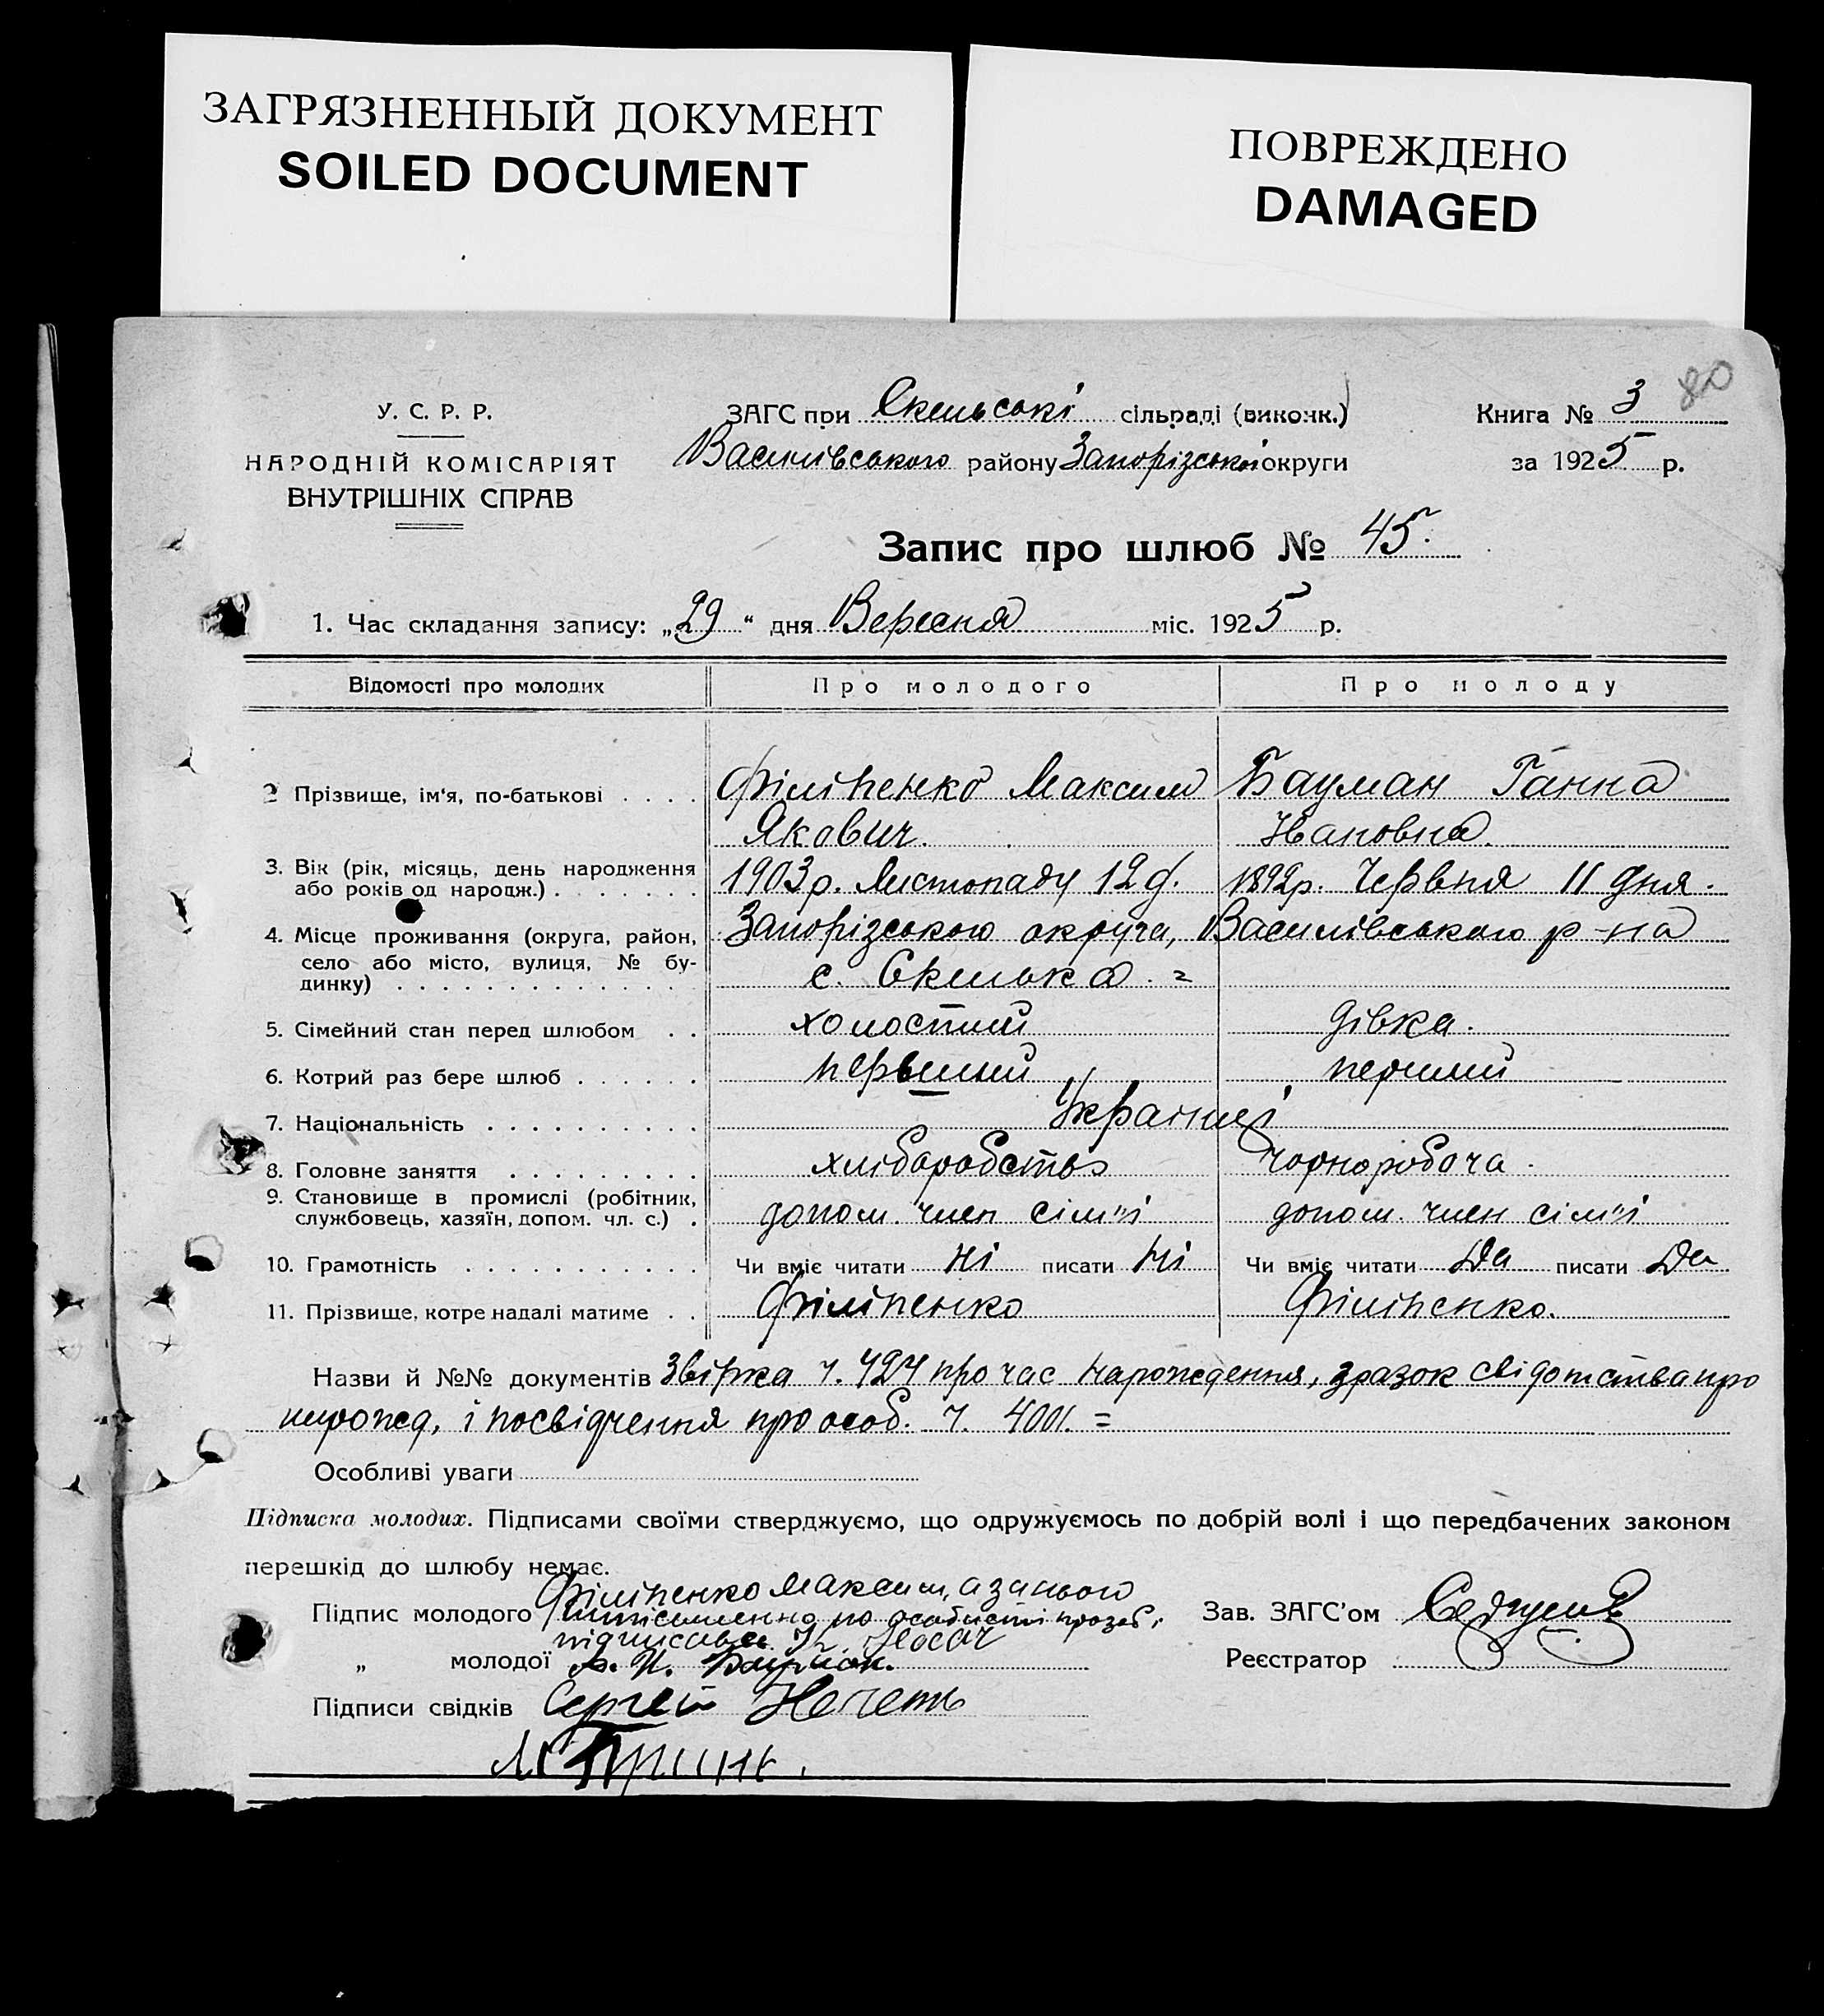 ЗАГРЯЗНЕННЫЙ ДОКУМЕНТ
SOILED DOCUMENT
ПОВРЕЖДЕНО
DAMAGED
80
У. С. Р. Р.
НАРОДНІЙ КОМІСАРІЯТ
ВНУТРІШНІХ СПРАВ
ЗАГС при Скельські сільраді (виконк.)
Василівського району Запорізської округи
Книга № 3
за 1925 р.
Запис про шлюб № 45.
1. Час складання запису: „29“ дня Вересня міс. 1925 р.
Відомості про молодих Про молодого Про молоду
2 Прізвище, ім'я, по-батькові . . . . Філіпенко Максим Бауман Ганна
Якович. Івановна.
3. Вік (рік, місяць, день народження
або років од народж.) . . . . . . . 1903р. Листопаду 12 д. 1892р. Червня 11 дня.
4. Місце проживання (округа, район, Запорізського округа, Василівського р-на
село або місто, вулиця, № бу-
динку) . . . . . . . . . . . . . . с. Скелька. =
5. Сімейний стан перед шлюбом . . холостий дівка.
6. Котрий раз бере шлюб . . . . . . первший перший
7. Національність . . . . . . . . . . Українці
8. Головне заняття . . . . . . . . . хлібаробство чорноробоча.
9. Становище в промислі (робітник,
службовець, хазяїн, допом. чл. с.) . допом. член сім'ї допом. член сім'ї
10. Грамотність . . . . . . . . . . . Чи вміє читати Ні писати Ні Чи вміє читати Да писати Да
11. Прізвище, котре надалі матиме . . Філіпенко Філіпенко.
Назви й №№ документів Звірка ч. 424 про час нарождення, зразок свідотства про
нарожд, і посвідчення про особ. ч. 4001. =
Особливі уваги
Підписка молодих. Підписами своїми стверджуємо, що одружуємось по добрій волі і що передбачених законом
перешкід до шлюбу немає.
Підпис молодого Філіпенко Максим, а за нього
по особисті прозьб,
підписався Носач
„ молодої Бауман.
Зав. ЗАГС'ом
Реєстратор
Підписи свідків Сергей